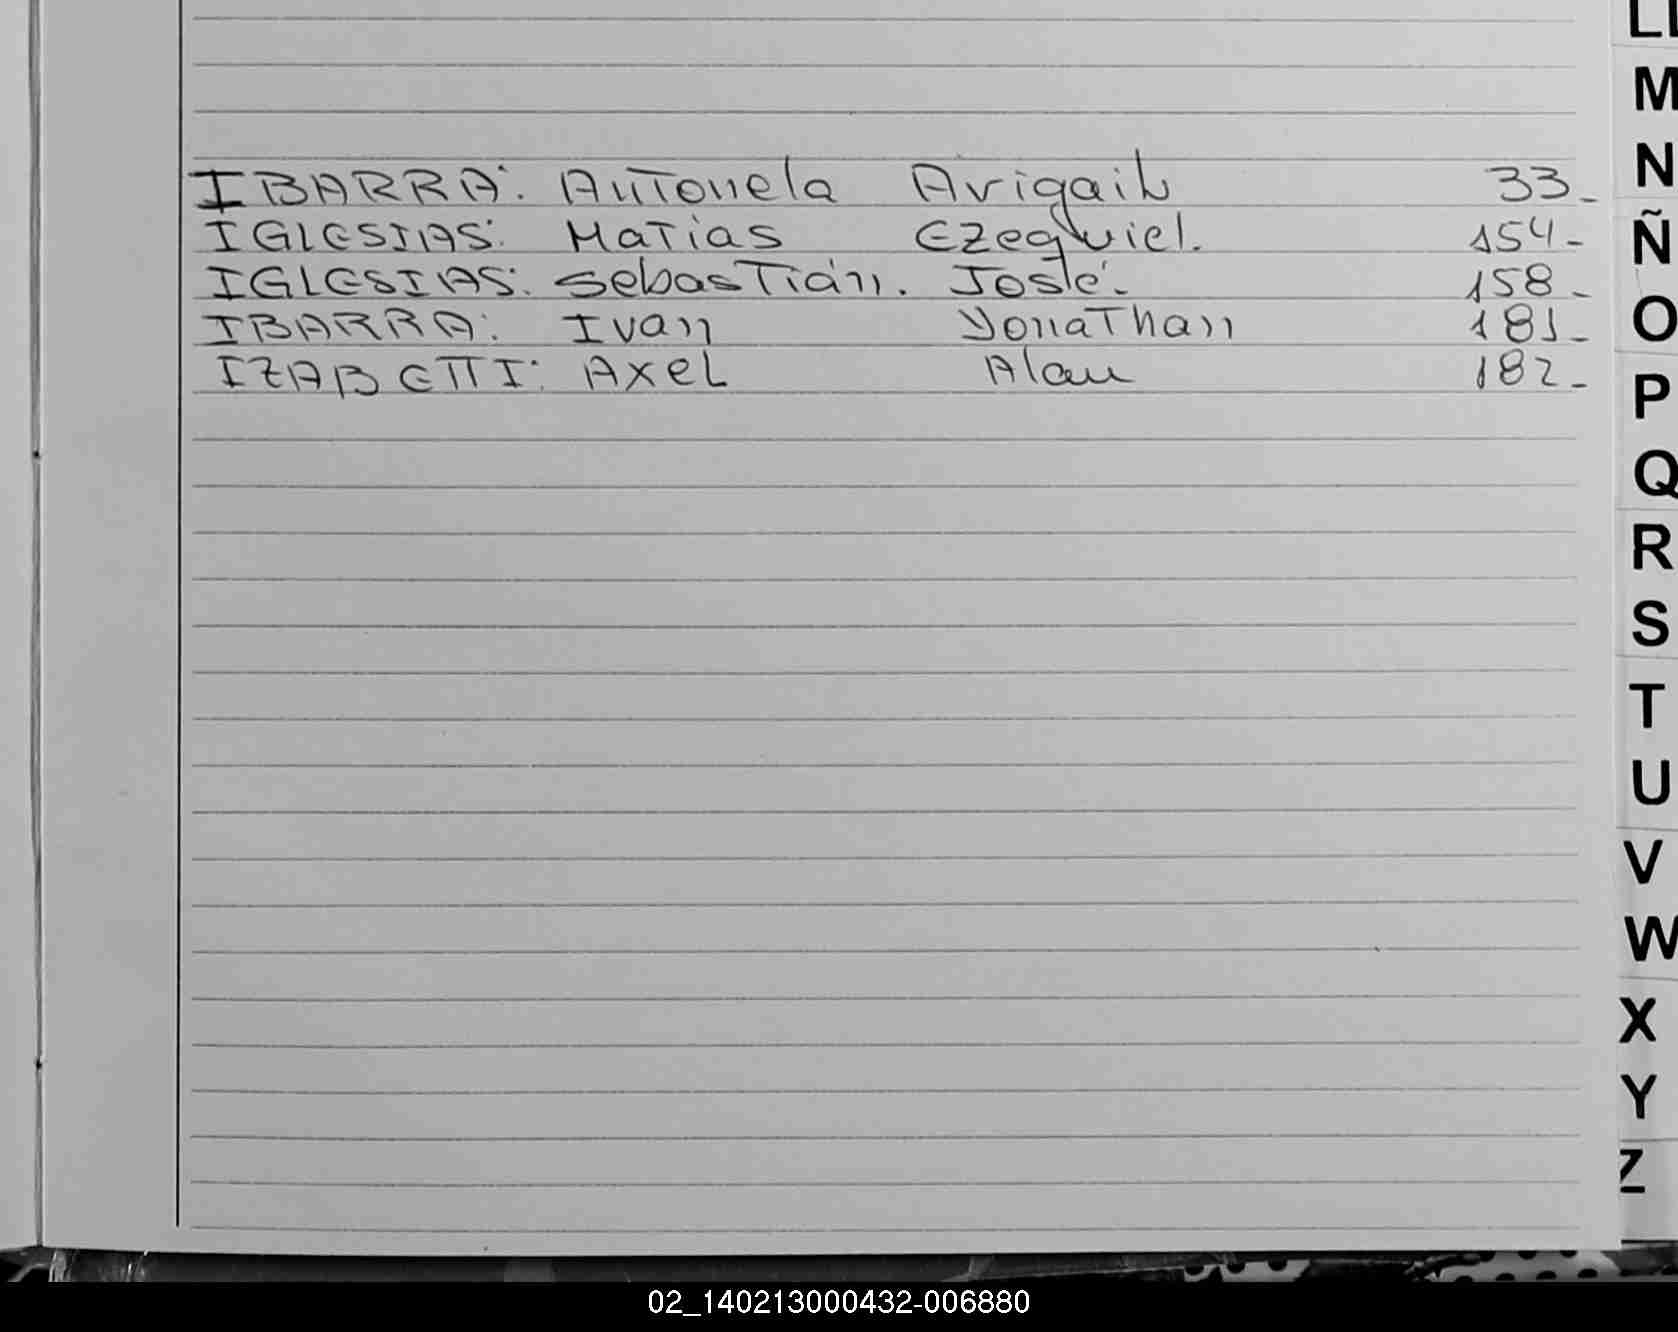 LL
M
N
Ñ
O
P
Q
R
S
T
U
V
W
X
Y
Z
IBARRA: Antonela Avigail 33-
IGLESIAS: Matias Ezequiel. 154-
IGLESIAS: Sebastián. José. 158-
IBARRA: Ivan Yonathan 181-
IZABETTI: Axel Alan 182-
02_140213000432-006880